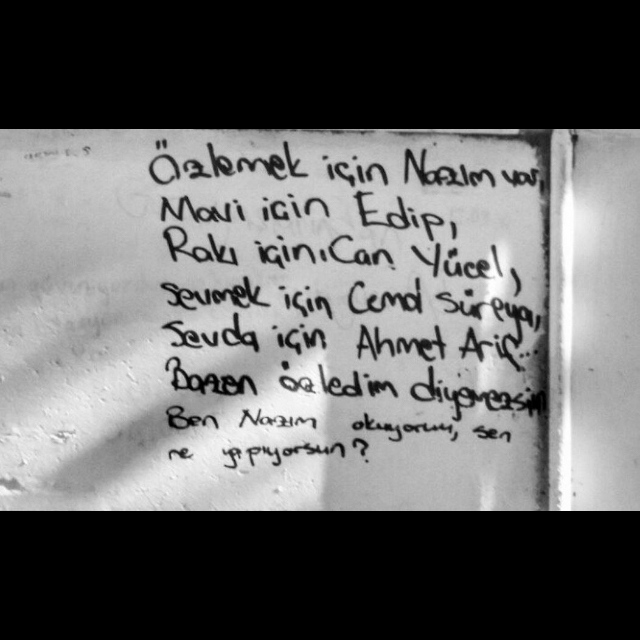 Özlemek için Nazım var,
Mavi için Edip,
Rakı için Can Yücel,
sevmek için Cemal Süreya,
Sevda için Ahmet Arif...
Bazen özledim diyemezsin
Ben Nazım okuyorum, sen
ne yapıyorsun?